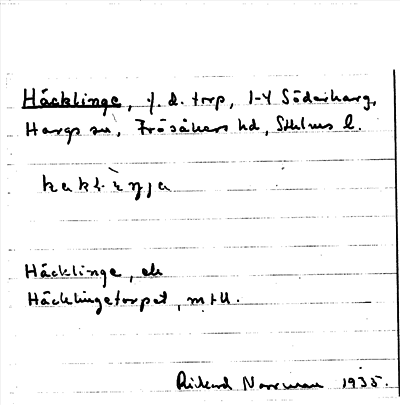 Häcklinge, f. d. torp, 1-4 Söderharg,
Hargs sn, Frösåkers hd, Sthlms l.
Häcklinge, ek
Häcklingetorpet, mtll.
Rikard Norrman 1935.